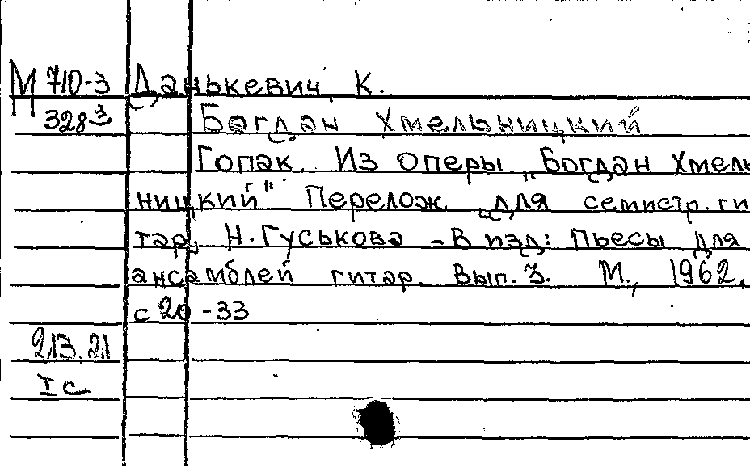 М 710-3 Данькевич, К.
328 Богдан Хмельницкий
Гопак. Из оперы „Богдан Хмель
ницкий" Перелож. для семистр. ги
тар. Н. Гуськова - В изд: Пьесы для
ансамблей гитар. Вып. 3. М., 1962,
с 20-33
2.13.21
I с